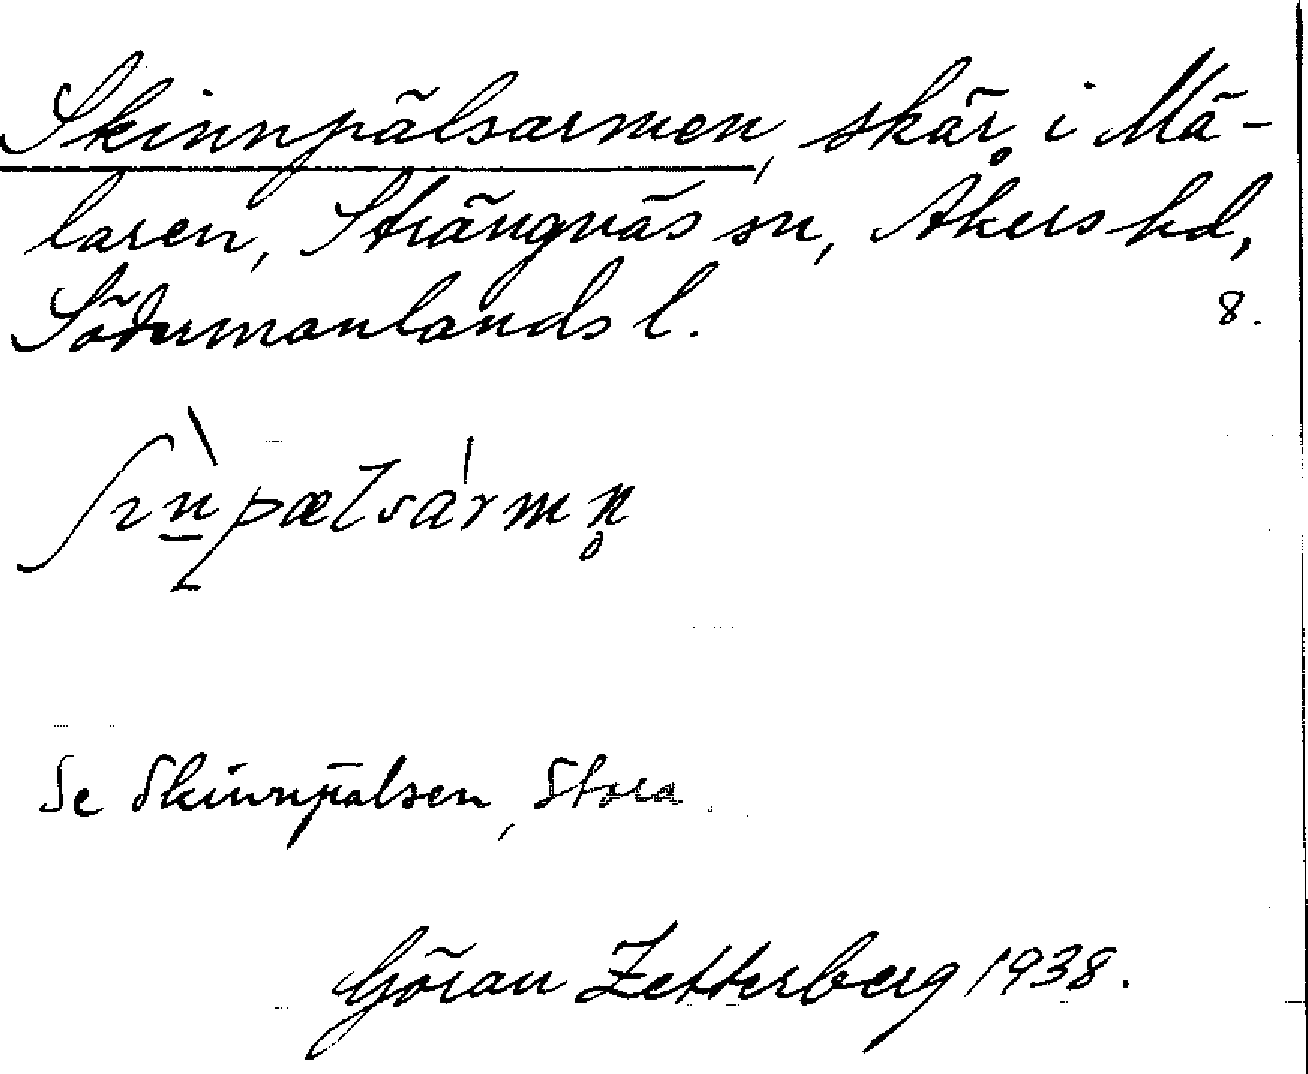 Skinnpälsarmen, skär i Mä-
laren, Strängnäs sn, Åkers hd,
Södermanlands l. 8.
ʃɪǹpælsármn̥
Se Skinnpälsen, Stora
Göran Zetterberg 1938.